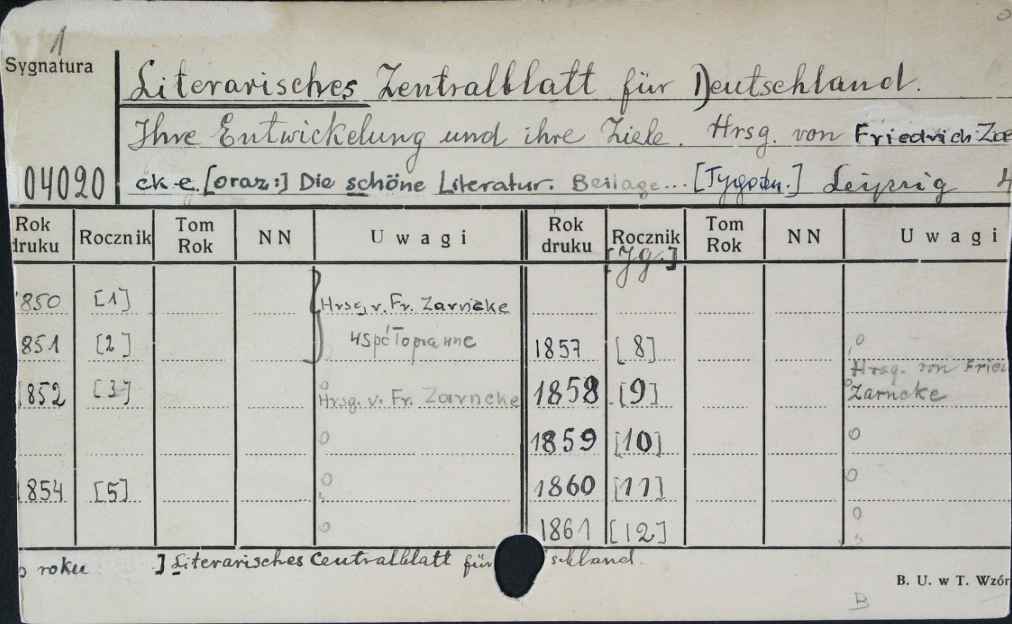 1
Sygnatura
Literarisches Zentralblatt für Deutschland.
Ihre Entwickelung und ihre Ziele. Hrsg. von Friedrich Za
04020
cke. [oraz:] Die schöne Literatur. Beilage... [Tygodn.] Leipzig 4
Rok druku Rocznik Tom Rok NN Uwagi Rok druku Rocznik Tom Rok NN Uwagi
[Jg.]
1850 [1] Hrsg. v. Fr. Zarncke
1851 [2] 1857 [8]
1852 [3] Hrsg. v. Fr. Zarncke 1858 [9] Hrsg. von Fried Zarncke
1859 [10]
1854 [5] 1860 [11]
1861 [12]
o roku ] Literarisches Centralblatt für schland.
B. U. w T. Wzór
B